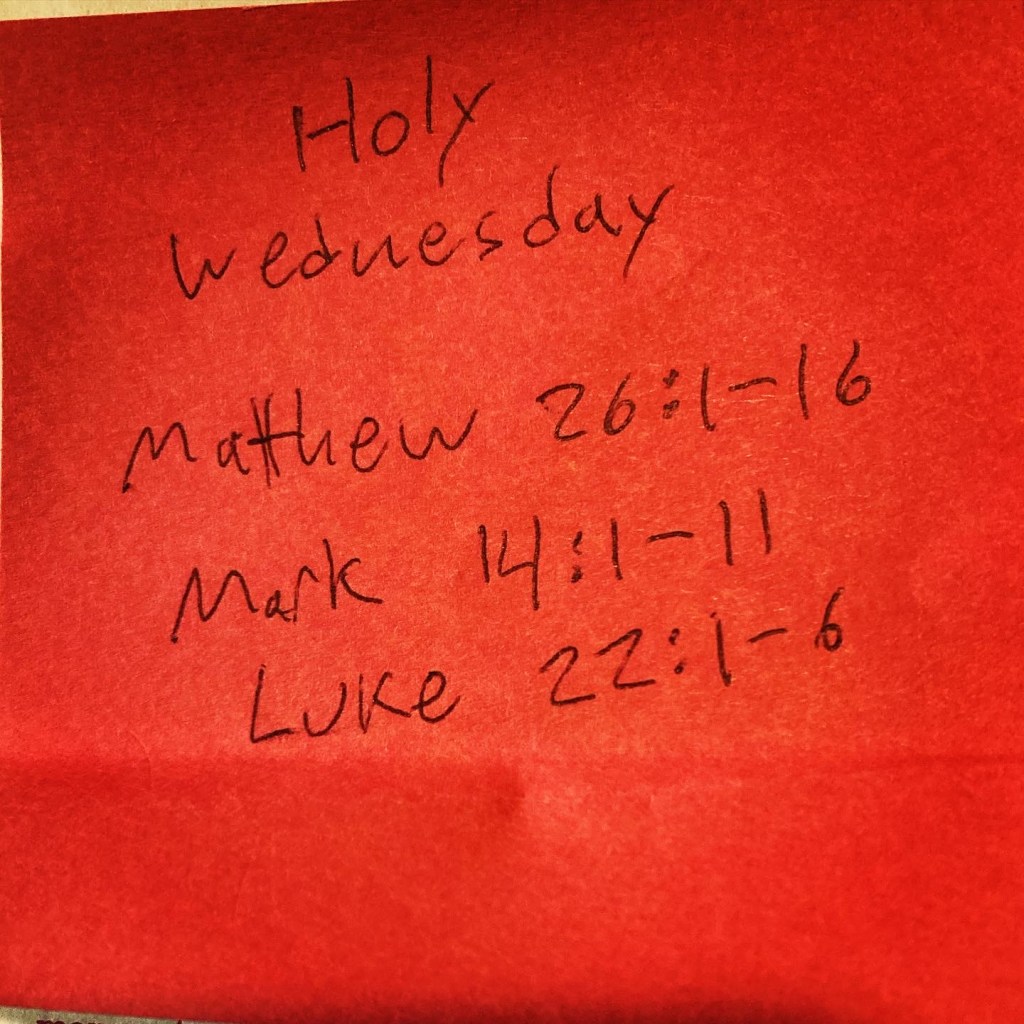 Holy
Wednesday
Matthew 26:1-16
Mark 14:1-11
Luke 22:1-6